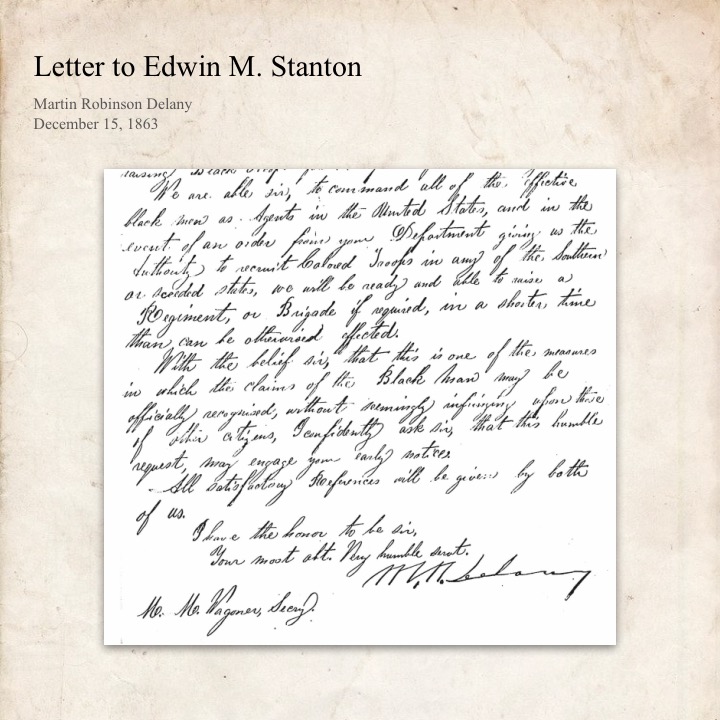 Letter to Edwin M. Stanton
Martin Robinson Delany
December 15, 1863
raising Black
We are able sir, to command all of the effective
black men as Agents in the United States, and in the
event of an order from your Department giving us the
Authority to recruit Colored Troops in any of the Southern
or seceded states, we will be ready and able to raise a
Regiment, or Brigade if required, in a shorter time
than can be otherwised effected.
With the belief sir, that this is one of the measures
in which the claims of the Black Man may be
officially recognised, without seemingly infringing upon those
of other citizens, I confidently ask sir, that this humble
request, may engage your early notice.
All satisfactory References will be given by both
of us.
I have the honor to be sir,
Your most obt. Very humble servt.
M. R. Delany
M. M. Wagoner, Secry.